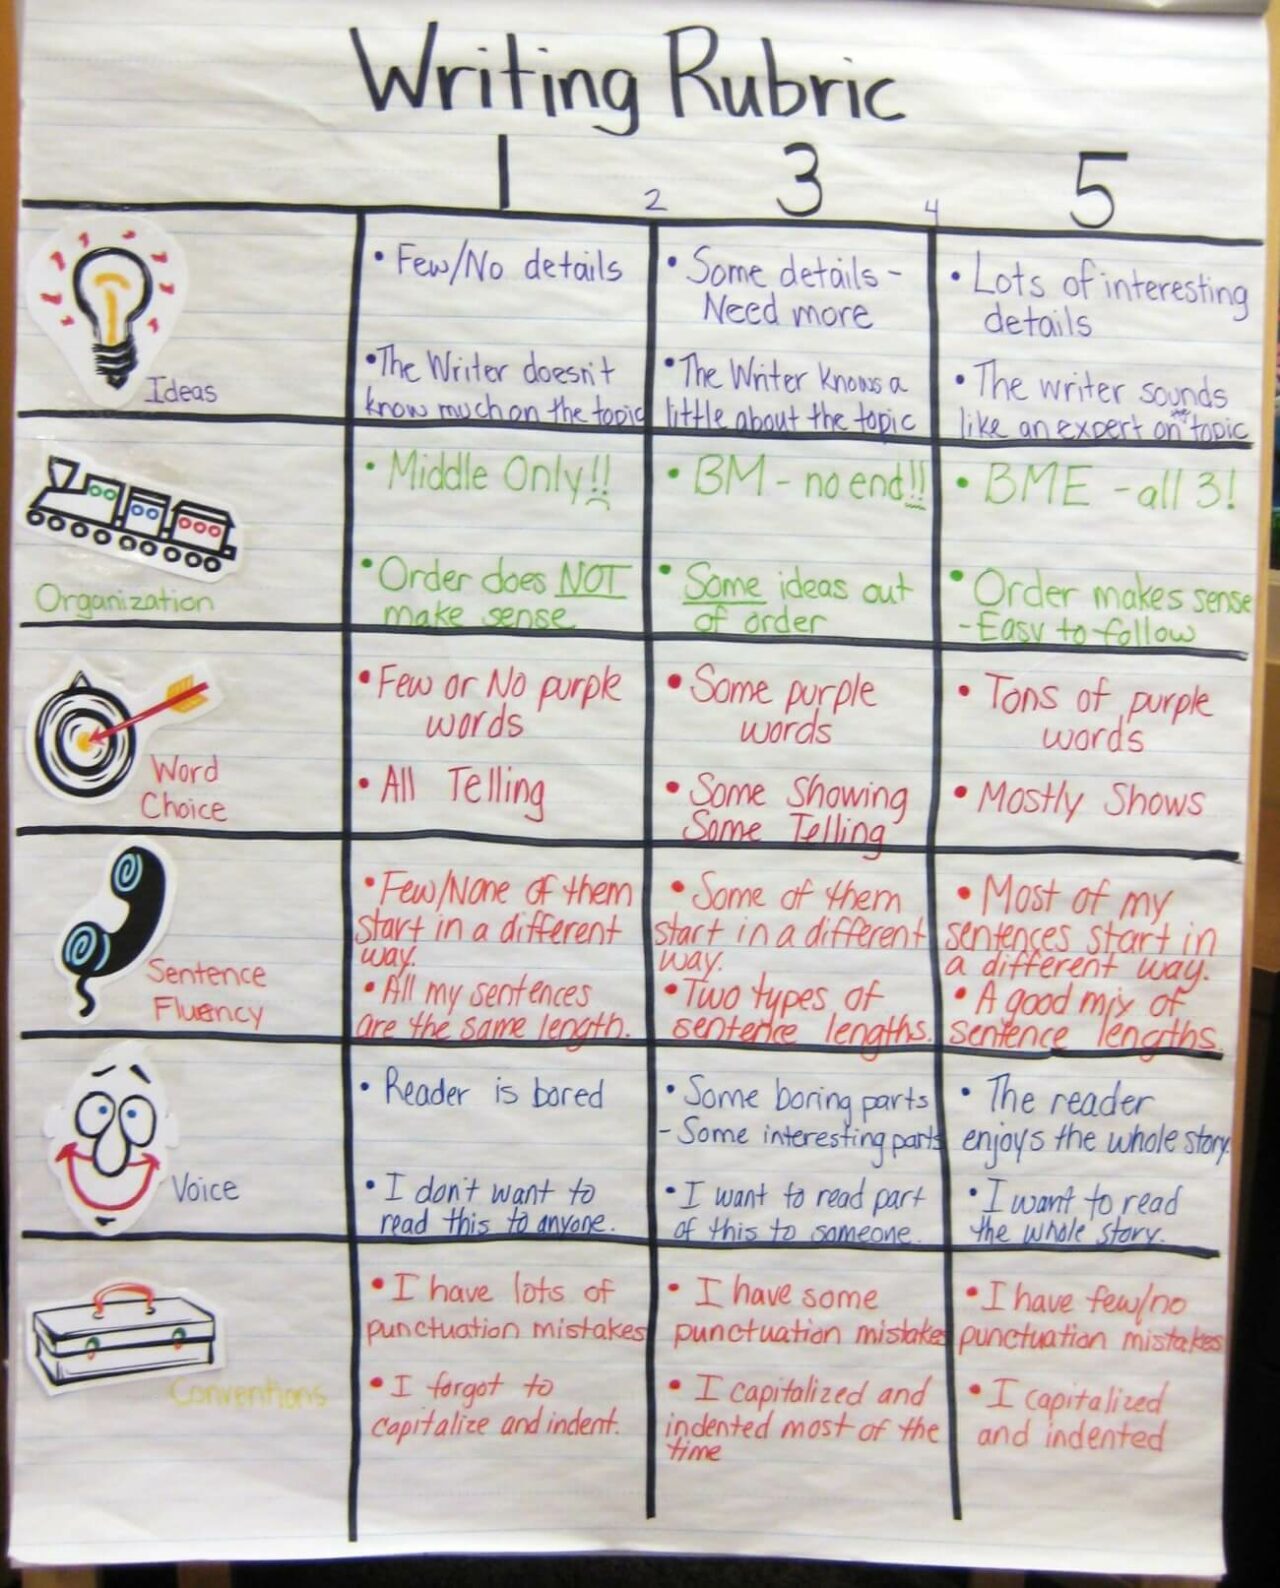 Writing Rubric
1 2 3 4 5
Ideas
• Few/No details
• The Writer doesn't
know much on the topic
• Some details -
Need more
• The Writer knows a
little about the topic
• Lots of interesting
details
• The writer sounds
like an expert on the topic
Organization
• Middle Only!!
• Order does NOT
make sense
• BM - no end!!
• Some ideas out
of order
• BME - all 3!
• Order makes sense
- Easy to follow
Word
Choice
• Few or No purple
words
• All Telling
• Some purple
words
• Some Showing
Some Telling
• Tons of purple
words
• Mostly Shows
Sentence
Fluency
• Few/None of them
start in a different
way.
• All my sentences
are the same length.
• Some of them
start in a different
way.
• Two types of
sentence lengths.
• Most of my
sentences start in
a different way.
• A good mix of
sentence lengths.
Voice
• Reader is bored
• I don't want to
read this to anyone.
• Some boring parts
- Some interesting parts
• I want to read part
of this to someone.
• The reader
enjoys the whole story.
• I want to read
the whole story.
Conventions
• I have lots of
punctuation mistakes
• I forgot to
capitalize and indent.
• I have some
punctuation mistakes
• I capitalized and
indented most of the
time
• I have few/no
punctuation mistakes
• I capitalized
and indented